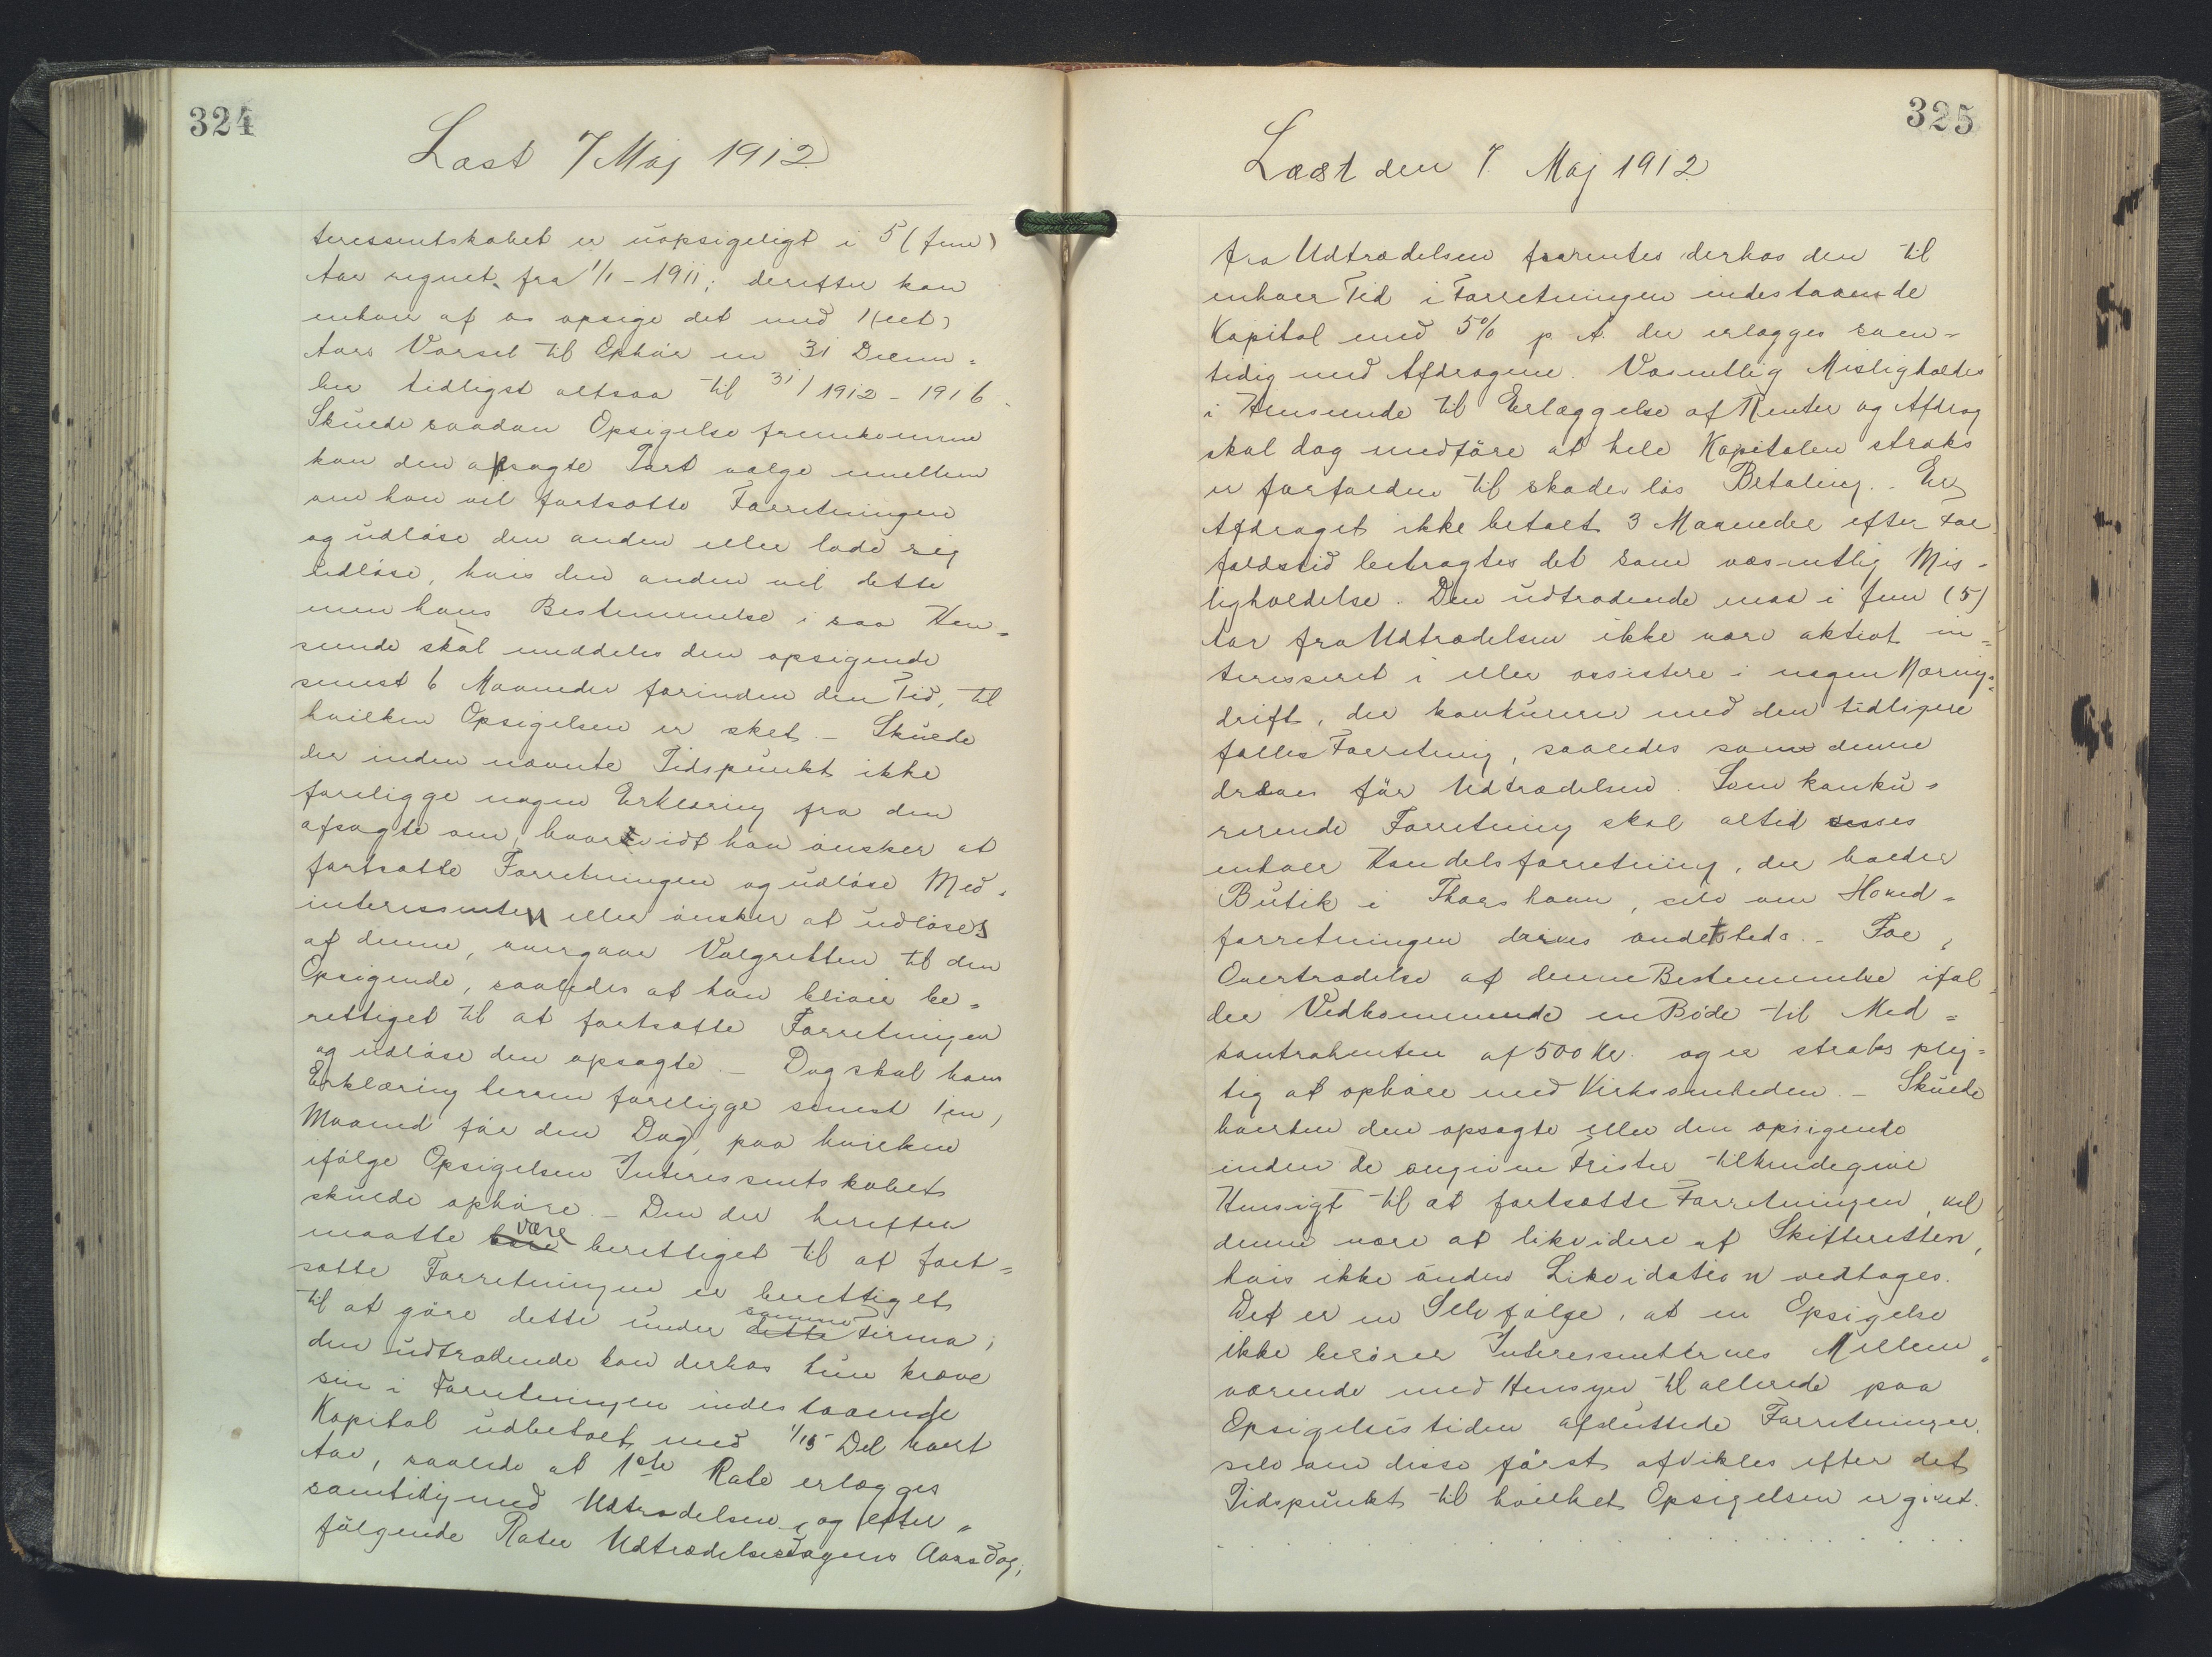 324
Læst 7 Maj 1912
teressentskabet er uopsigeligt i 5 (fem)
Aar regnet fra 1/1 - 1911; derefter kan
enhver af os opsige det med 1 (eet)
Aars Varsel til Ophør en 31 Decem-
ber tidligst altsaa til 31/1912 - 1916.
Skulde saadan Opsigelse fremkomme
kan den opsagte Part vælge mellem
om han vil fortsætte Forretningen
og udløse den anden eller lade sig
udløse, hvis den anden vil dette
men hans Bestemmelse i saa Hen-
seende skal meddeles den opsigende
senest 6 Maaneder forinden den Tid, til
hvilken Opsigelsen er sket. - Skulde
der inden nævnte Tidspunkt ikke
foreligge nogen Erklæring fra den
opsagte om, hvorvidt han ønsker at
fortsætte Forretningen og udløse Med-
interessenten eller ønsker at udløses
af denne, overgaar Valgretten til den
Opsigende, saaledes at han bliver be-
rettiget til at fortsætte Forretningen
og udløse den opsagte. - Dog skal hans
Erklæring herom foreligge senest 1 (en)
Maaned før den Dag, paa hvilken
ifølge Opsigelsen Interessentskabet
skulde ophøre. - Den der herefter
maatte være berettiget til at fort-
sætte Forretningen er berettiget
til at gøre dette under dette samme Firma;
den udtrædende kan derhos kun kræve
sin i Forretningen indestaaende
Kapital udbetalt med 1/15 Del hvert
Aar, saaledes at 1ste Rate erlægges
samtidig med Udtrædelsen, og efter-
følgende Rater Udtrædelsesdagens Aarsdag;
325
Læst den 7. Maj 1912
fra Udtrædelsen forrentes derhos den til
enhver Tid i Forretningen indestaaende
Kapital med 5% p. A. der erlægges sam-
tidig med Afdragene. Væsentlig Misligholdes
i Henseende til Erlæggelse af Renter og Afdrag
skal dog medføre at hele Kapitalen straks
er forfalden til skadesløs Betaling. - Er
Afdraget ikke betalt 3 Maaneder efter For
faldstid betragtes det som væsentlig Mis-
ligholdelse. Den udtrædende maa i fem (5)
Aar fra Udtrædelsen ikke være aktivt in-
teresseret i eller assistere i nogen Næring-
drift, der konkurerer med den tidligere
fælles Forretning, saaledes som denne
dreves før Udtrædelsen. Som konku-
rerende Forretning skal altid anses
enhver Handelsforretning, der holder
Butik i Thorshavn, selv om Hoved-
forretningen drives andetsteds. - For
Overtrædelse af denne Bestemmelse ifal-
der Vedkommende en Bøde til Med-
kontrahenten af 500 Kr. og er straks plig-
tig at ophøre med Virksomheden. - Skulde
hverken den opsagte eller den opsigende
inden de angivne Frister tilkendegive
Hensigt til at fortsætte Forretningen, vil
denne være at likvidere af Skifteretten,
hvis ikke anden Likvidation vedtages.
Det er en Selvfølge, at en Opsigelse
ikke berører Interessenternes Mellem-
værende med Hensyn til allerede paa
Opsigelsestiden afsluttede Forretninger,
selv om disse først afvikles efter det
Tidspunkt til hvilket Opsigelsen er givet.